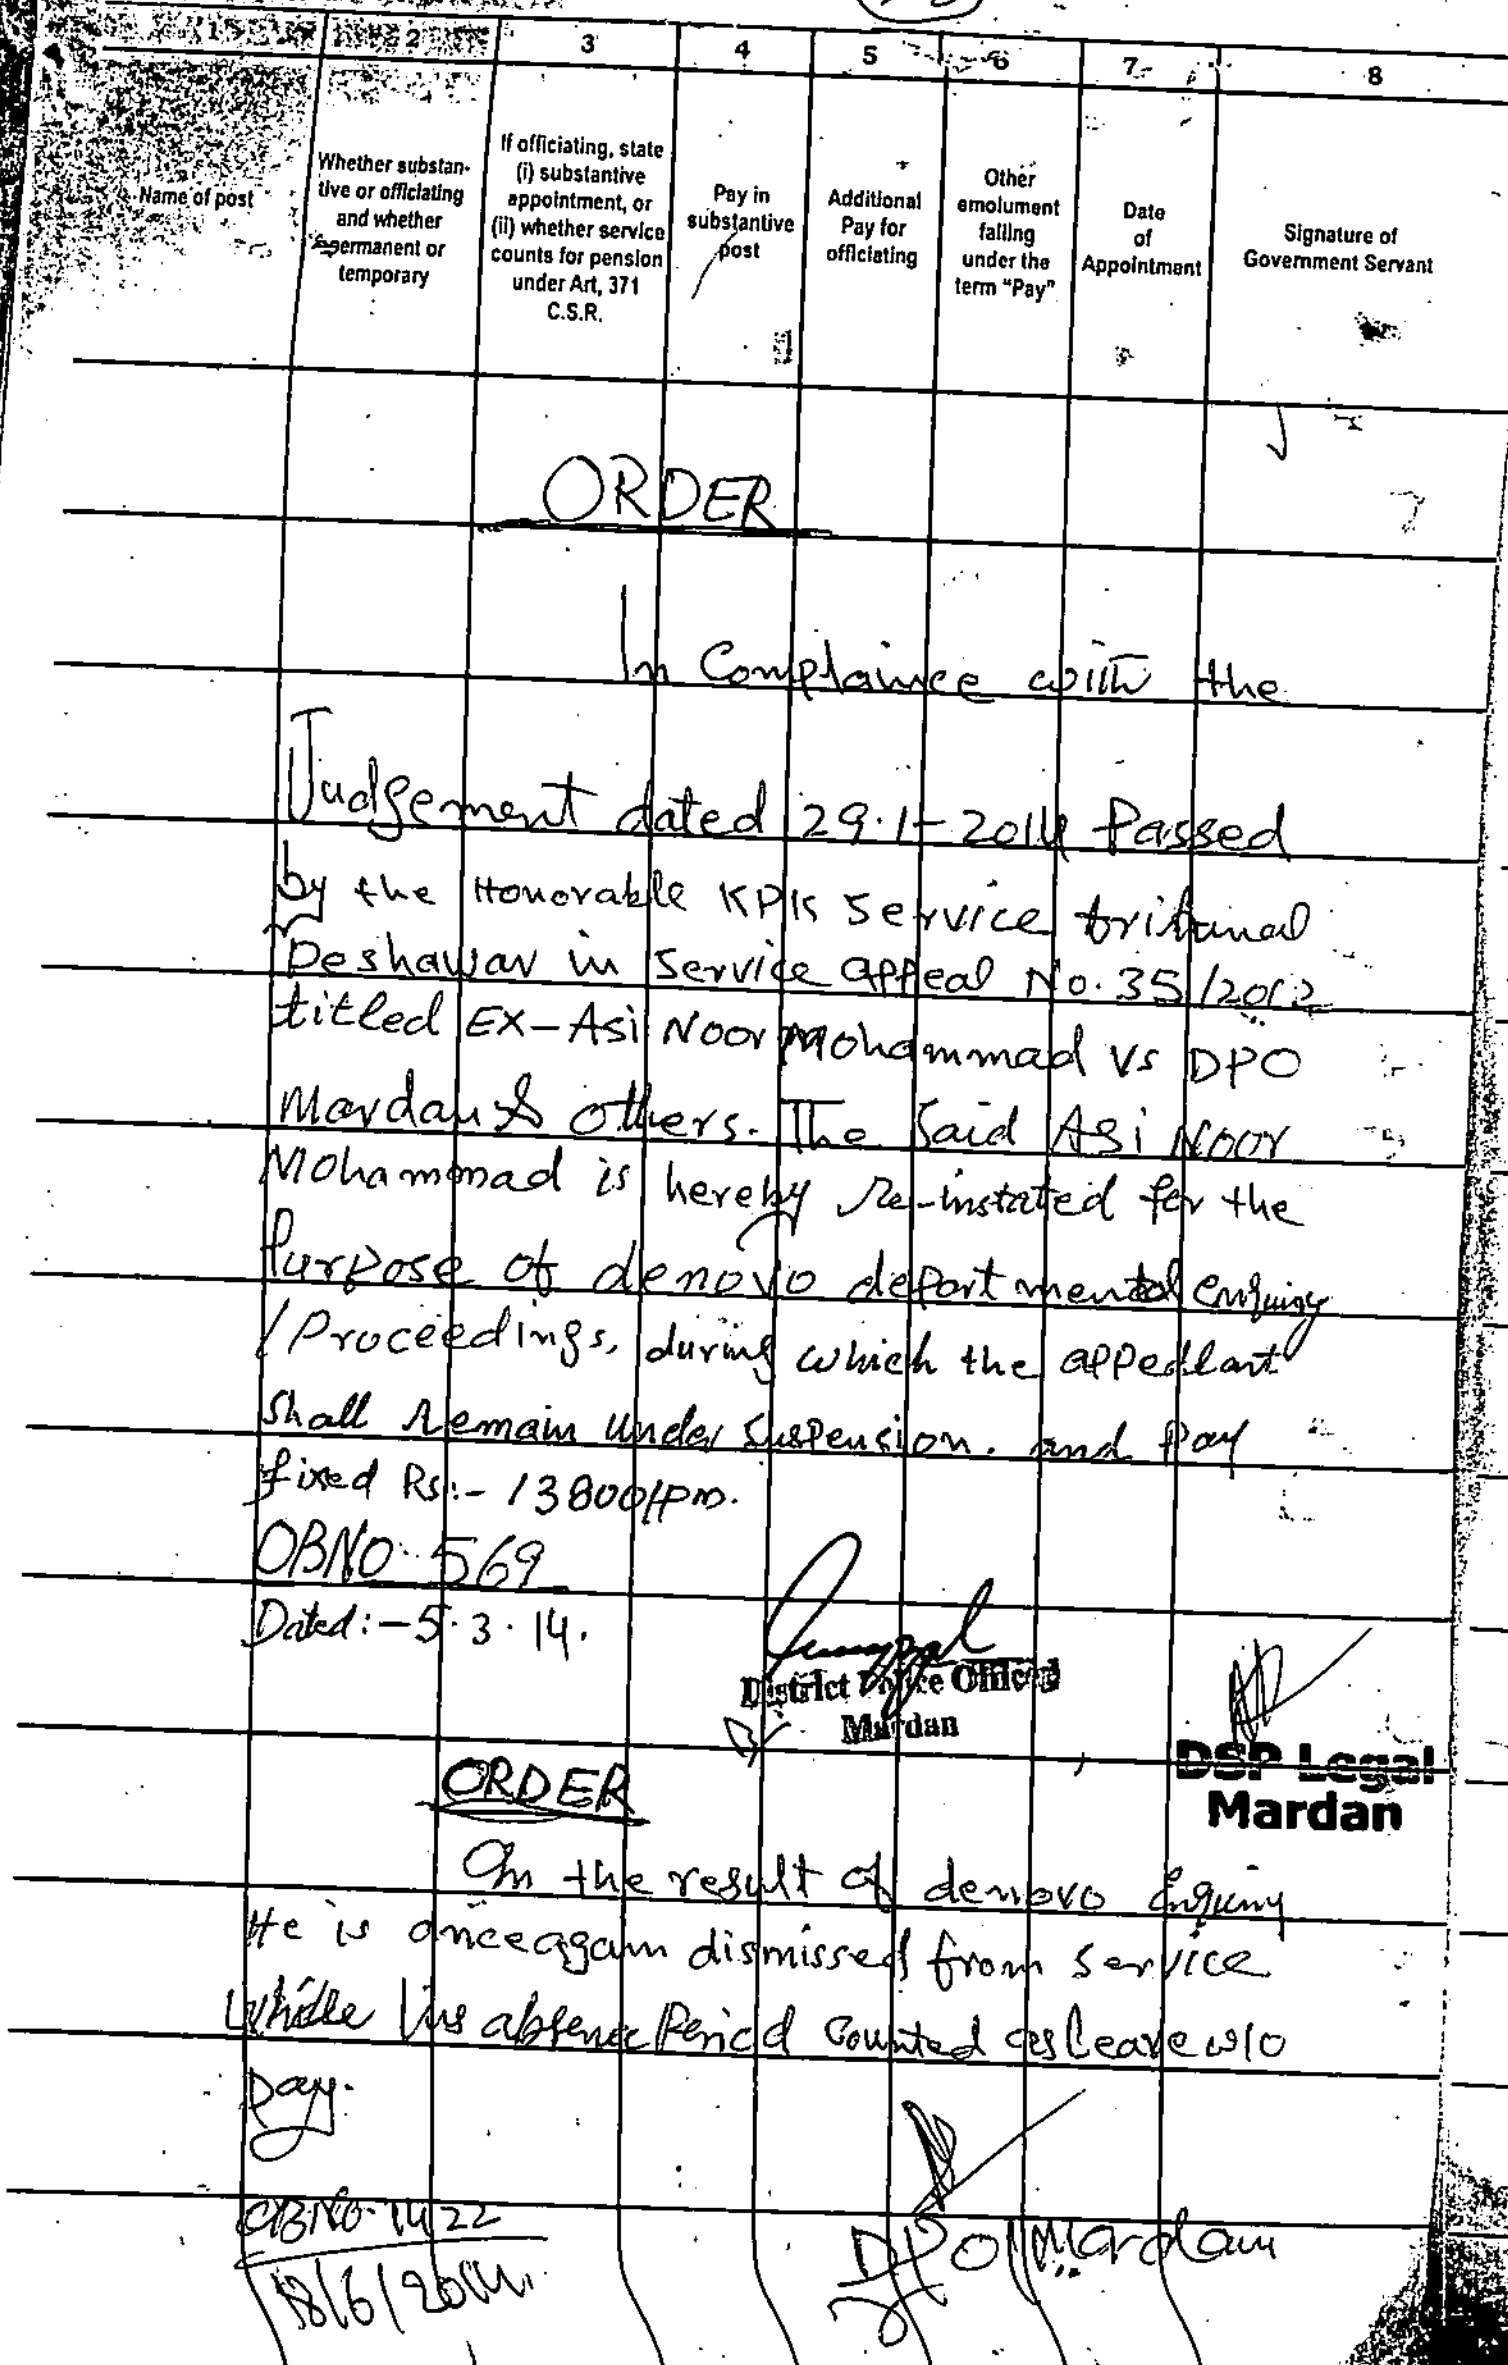 1 2 3 4 5 6 7 8
Name of post
Whether substan-
tive or officiating
and whether
permanent or
temporary
If officiating, state
(i) substantive
appointment, or
(ii) whether service
counts for pension
under Art, 371
C.S.R.
Pay in
substantive
post
Additional
Pay for
officiating
Other
emolument
falling
under the
term "Pay"
Date
of
Appointment
Signature of
Government Servant
ORDER
In Complaince with the
Judgement dated 29.1-2014 Passed
by the Honorable KPK Service tribunal
Peshawar in Service appeal No. 35/2012
titled EX-Asi Noor Mohammad vs DPO
Mardan & others. The Said Asi Noor
Mohammad is hereby Re-instated for the
Purpose of denovo departmental enquiry
/Proceedings, during which the appellant
Shall Remain under Suspension. and Pay
fixed Rs:- 13800/pm.
OBNO 569
Dated:- 5.3.14.
District Police Officer
Mardan
DSP Legal
Mardan
ORDER
On the result of denovo Enquiry
He is once again dismissed from service
while his absence Period Counted as leave w/o
pay.
OBNO. 1422
18/6/2014
DPO Mardan